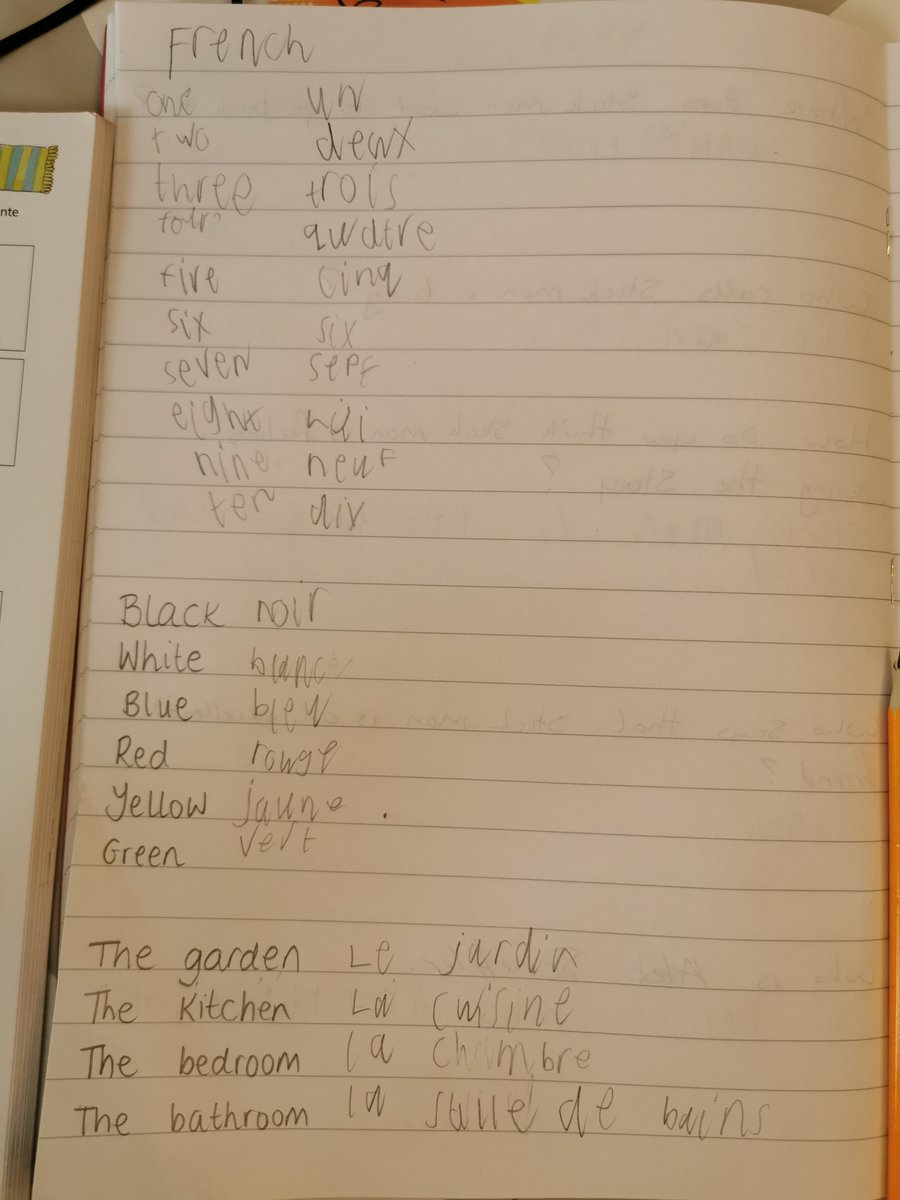 French
one un
two deux
three trois
four quatre
five cinq
six six
seven sept
eight
nine neuf
ten dix
Black noir
White blanc
Blue bleu
Red rouge
Yellow jaune .
Green vert
The garden Le jardin
The Kitchen La cuisine
The bedroom la chambre
The bathroom la salle de bains
nte